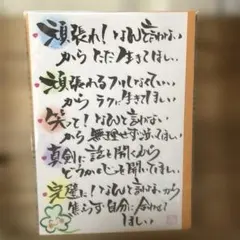 頑張れ！なんて言わない
からただ生きてほしい
頑張れるフリしなくていい
からラクに生きてほしい
笑って！なんて言わない
から無理せず笑ってほしい
真剣に話を聞くから
どうか心を開いてほしい
完璧に！なんて言わないから
焦らず自分に合わせて
ほしい